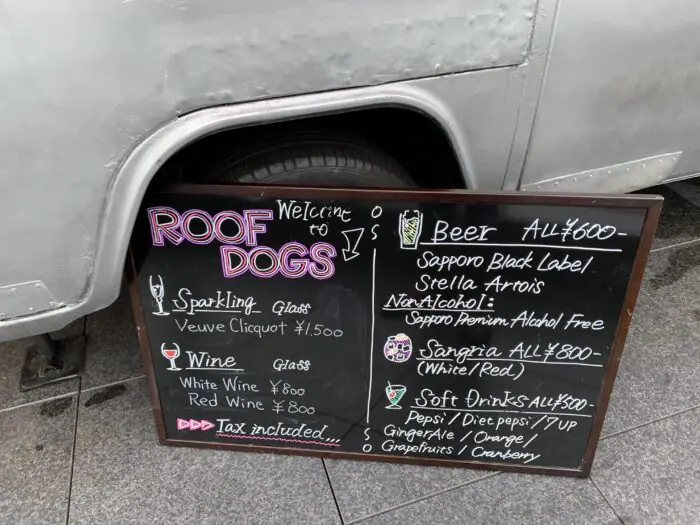 Welcome
to
ROOF
DOGS
Sparkling Glass
Veuve Clicquot ¥1,500
Wine Glass
White Wine ¥800
Red Wine ¥800
Tax included...
Beer ALL ¥600-
Sapporo Black Label
Stella Artois
Non Alcohol:
Sapporo Premium Alcohol Free
Sangria ALL ¥800-
(White/Red)
Soft Drinks ALL ¥500-
Pepsi / Diet pepsi / 7UP
Ginger Ale / Orange /
Grapefruits / Cranberry